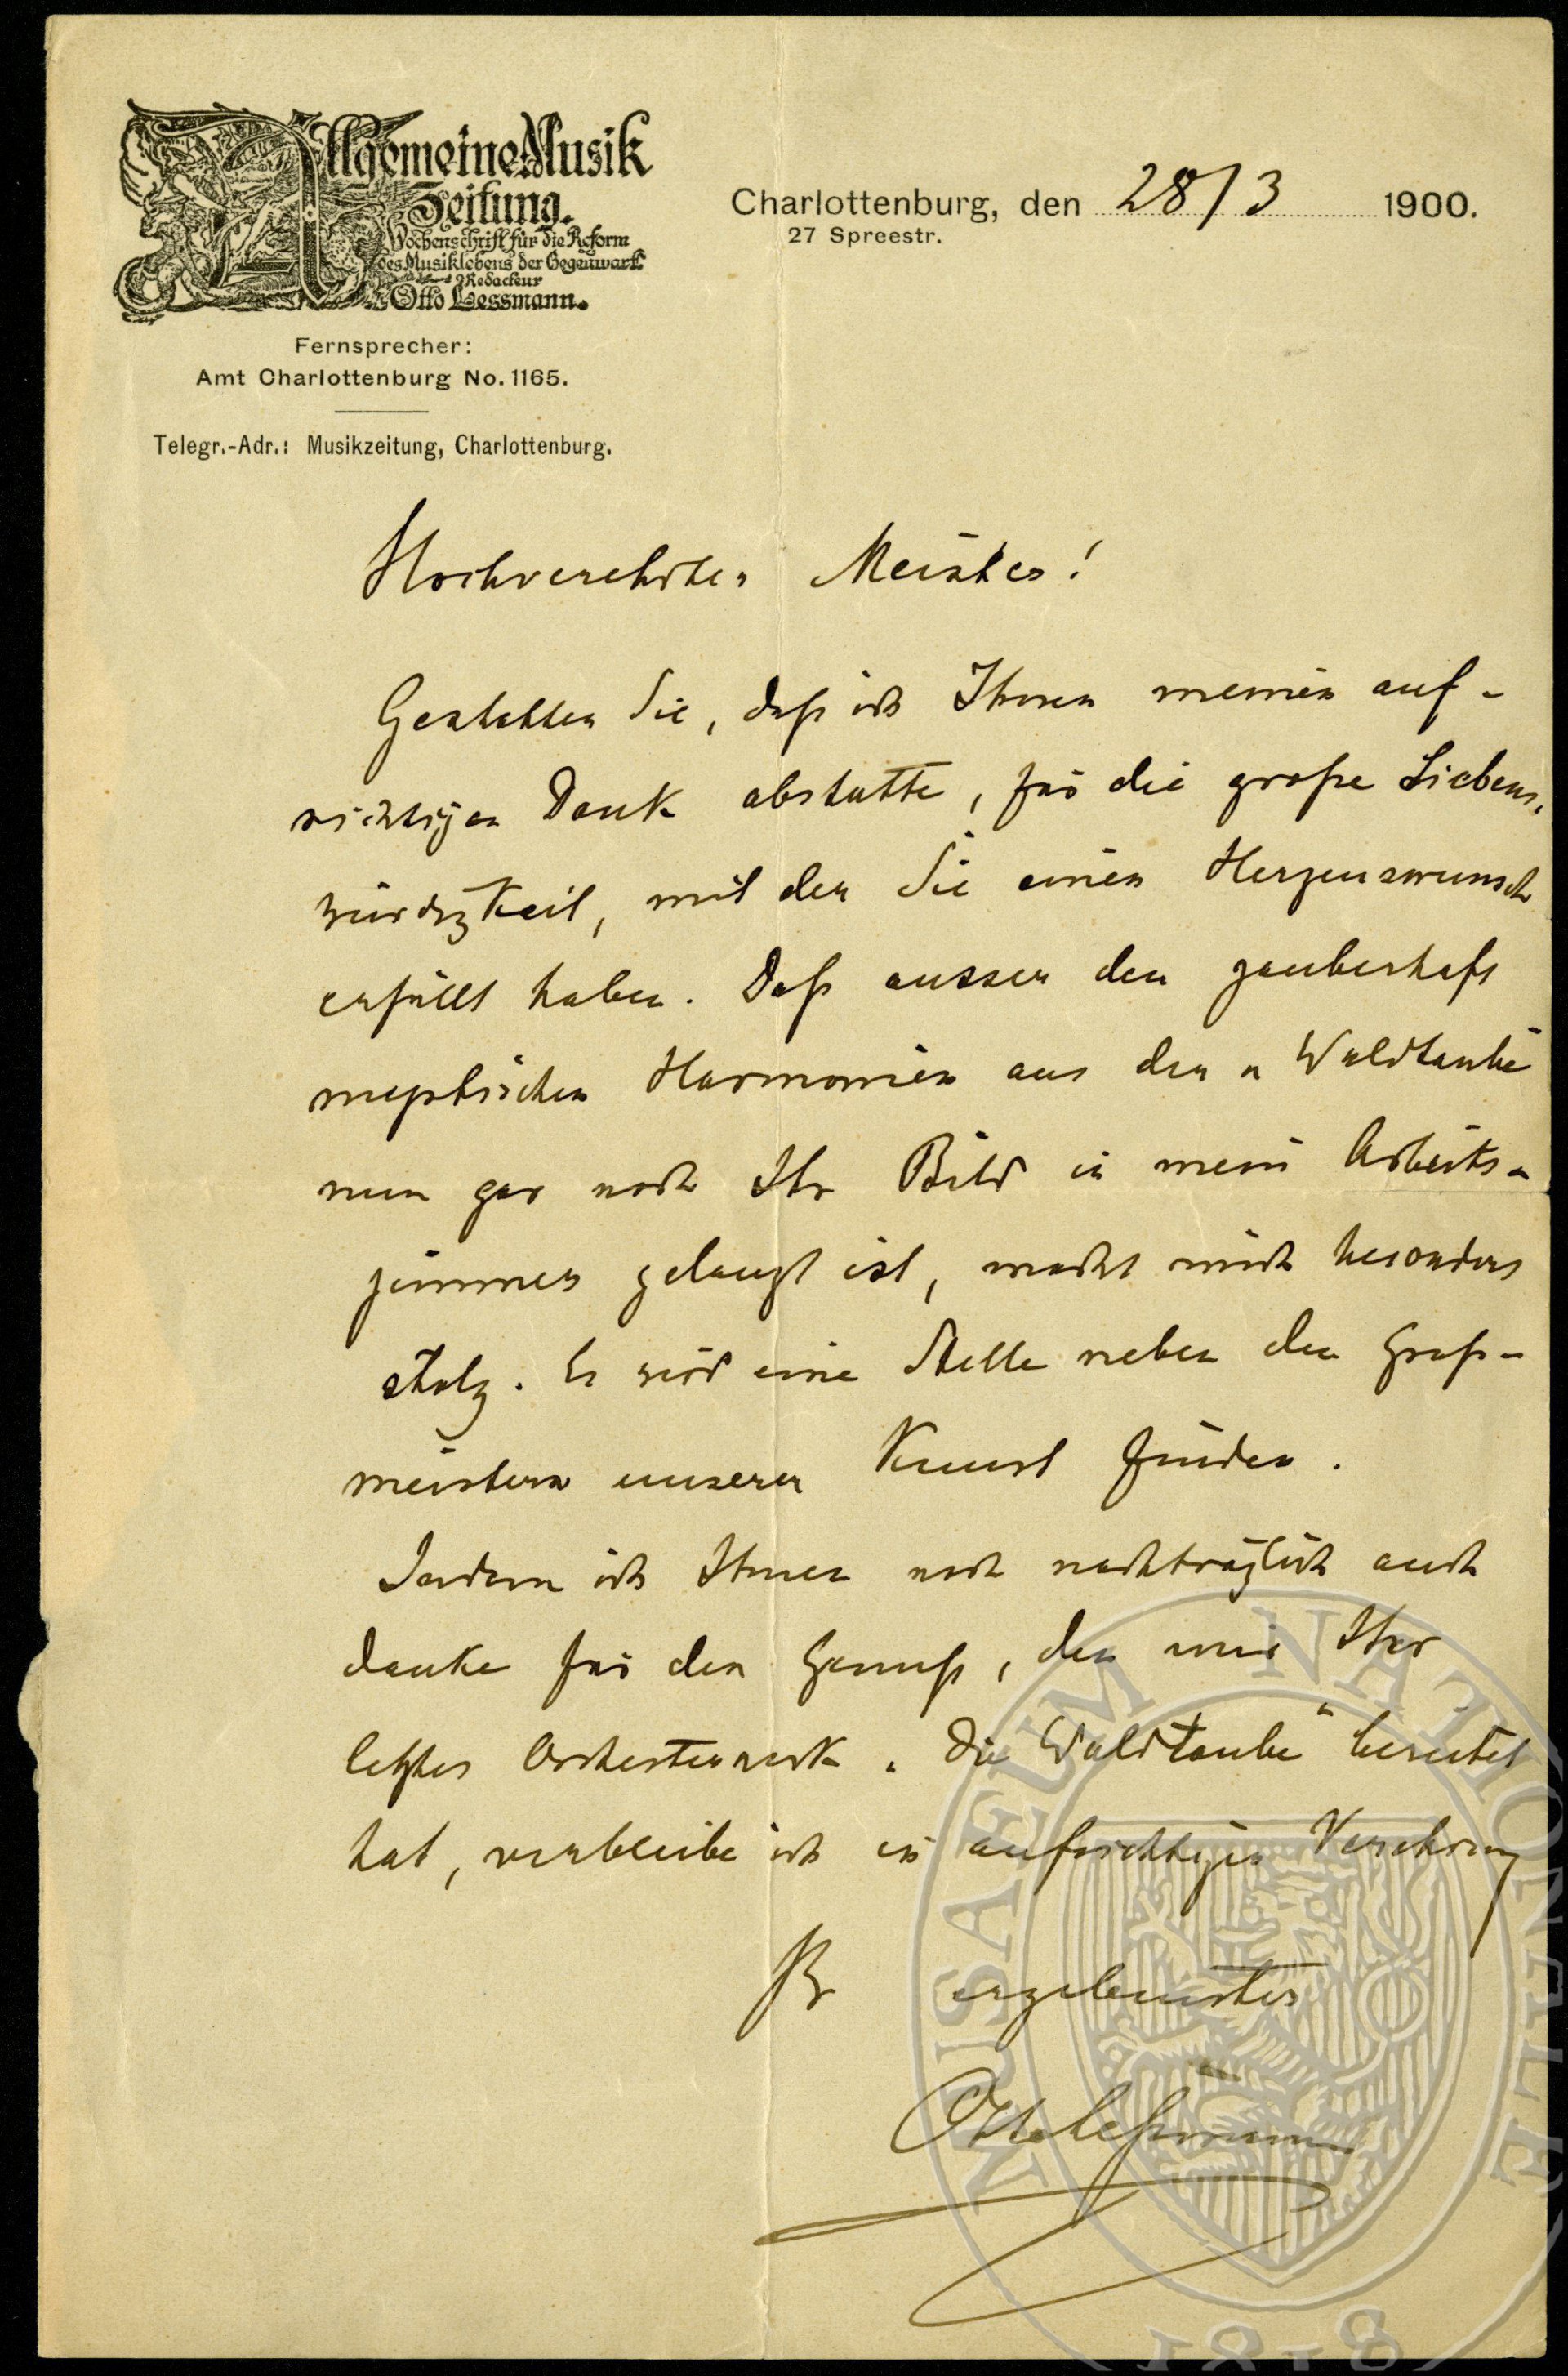 Allgemeine Musik
Zeitung.
Wochenschrift für die Reform
des Musiklebens der Gegenwart
Redacteur
Otto Lessmann.
Fernsprecher:
Amt Charlottenburg No. 1165.
Telegr.-Adr.: Musikzeitung, Charlottenburg.
Charlottenburg, den 28/3 1900.
27 Spreestr.
Hochverehrter Meister!
Gestatten Sie, daß ich Ihnen meinen auf-
richtigen Dank abstatte, für die große Liebens-
würdigkeit, mit der Sie einen Herzenswunsch
erfüllt haben. Daß ausser den zauberhaft
mystischen Harmonien aus der „Waldtaube
nun gar noch Ihr Bild in mein Arbeits-
zimmer gelangt ist, macht mich besonders
stolz. Es wird eine Stelle neben den Groß-
meistern unserer Kunst finden.
Indem ich Ihnen noch nachträglich auch
danke für den Genuß, den mir Ihr
letztes Orchesterwerk „Die Waldtaube" bereitet
hat, verbleibe ich in aufrichtiger Verehrung
Ihr ergebenster
Otto Leßmann
MUSAEUM NATIONALE
1818